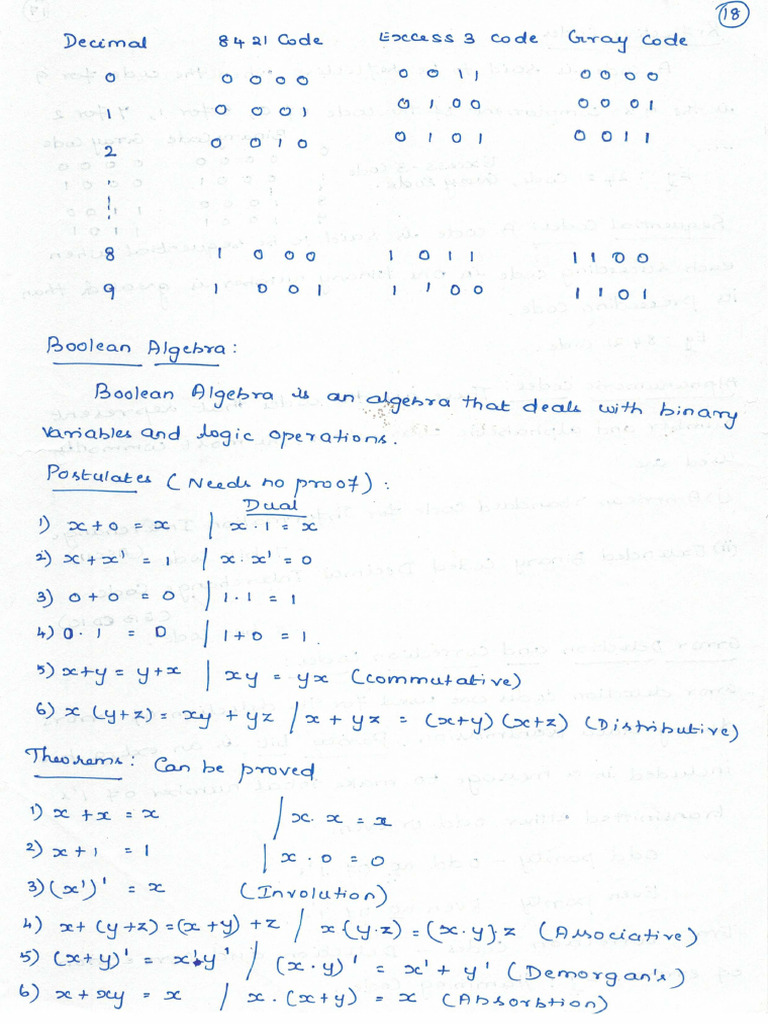 18
Decimal 8421 Code Excess 3 code Gray Code
0 0 0 0 0 0 0 1 1 0 0 0 0
1 0 0 0 1 0 1 0 0 0 0 0 1
2 0 0 1 0 0 1 0 1 0 0 1 1
8 1 0 0 0 1 0 1 1 1 1 0 0
9 1 0 0 1 1 1 0 0 1 1 0 1
Boolean Algebra:
Boolean Algebra is an algebra that deals with binary
variables and logic operations.
Postulates (Needs no proof):
Dual
1) x+0 = x / x·1 = x
2) x+x' = 1 / x·x' = 0
3) 0+0 = 0 / 1·1 = 1
4) 0·1 = 0 / 1+0 = 1.
5) x+y = y+x / xy = yx (commutative)
6) x (y+z) = xy + yz / x + yz = (x+y) (x+z) (Distributive)
Theorems: Can be proved
1) x + x = x / x·x = x
2) x+1 = 1 / x·0 = 0
3) (x')' = x (Involution)
4) x+ (y+z) = (x+y) +z / x{y·z) = (x·y}z (Associative)
5) (x+y)' = x'·y' / (x·y)' = x'+y' (Demorgan's)
6) x + xy = x / x·(x+y) = x (Absorbtion)